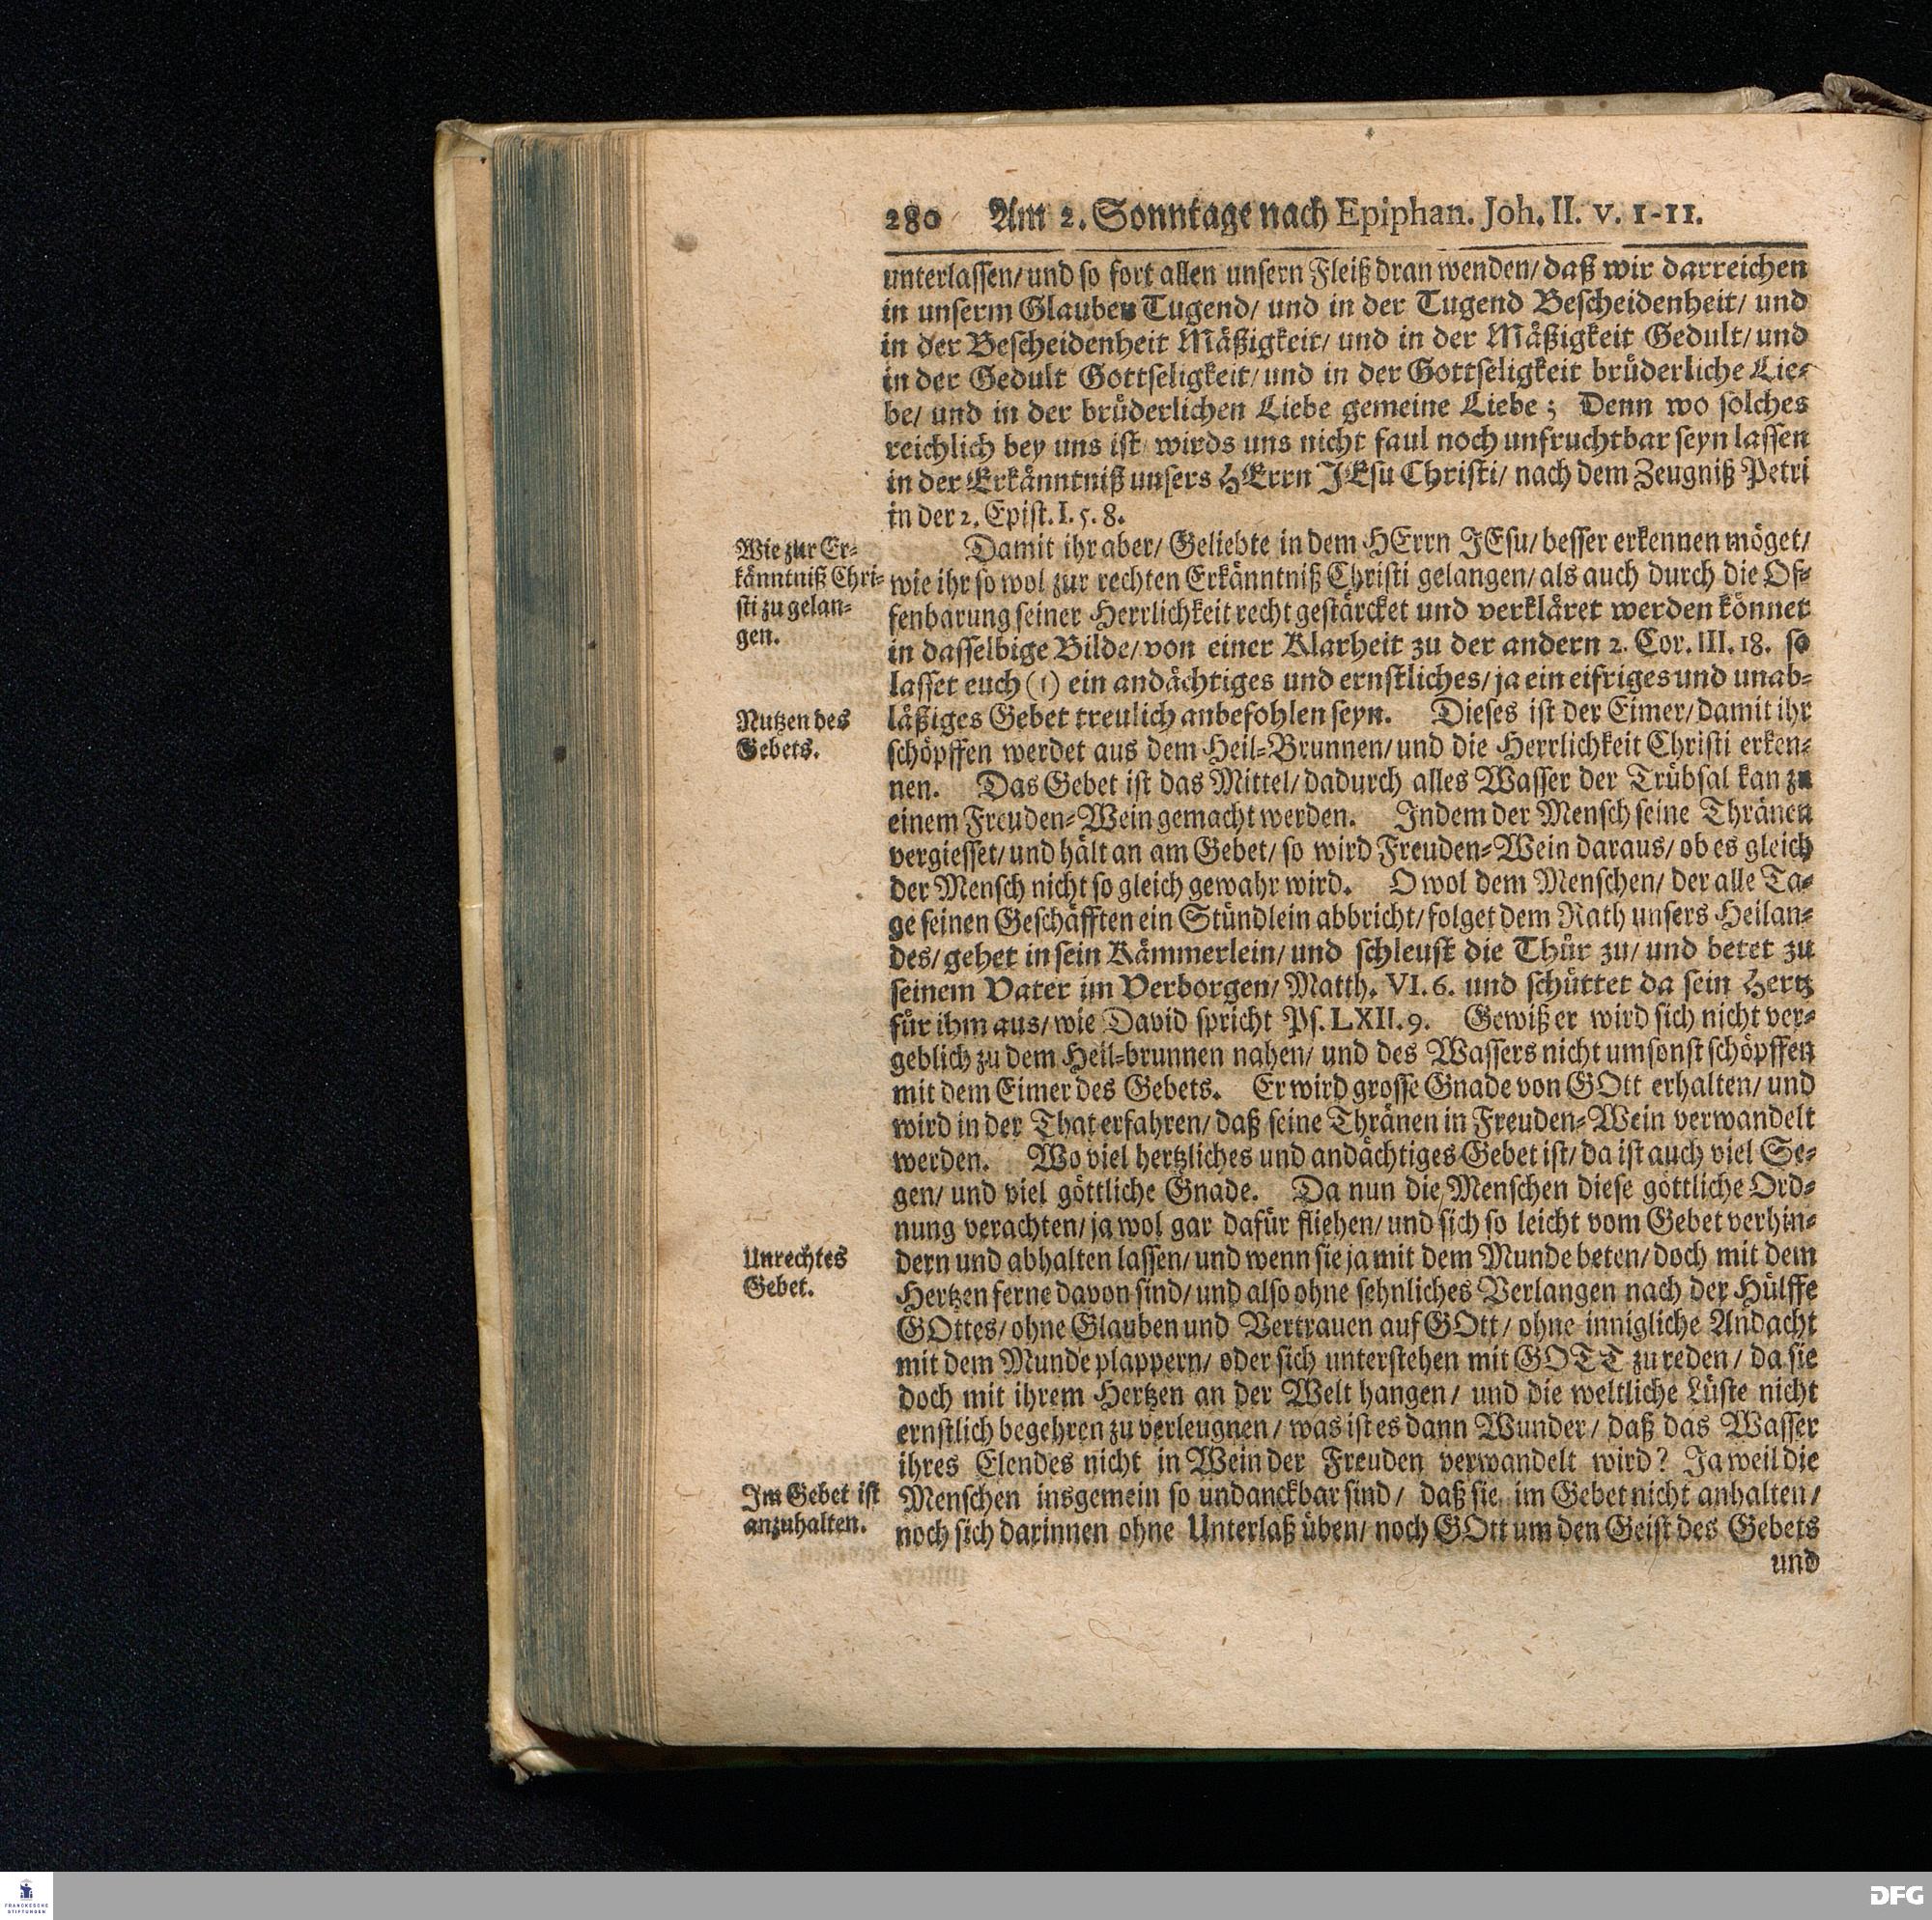 280 Am 2. Sonntage nach Epiphan. Joh. II. v. 1-11.
unterlassen/ und so fort allen unsern Fleiß dran wenden/ daß wir darreichen
in unserm Glauben Tugend/ und in der Tugend Bescheidenheit/ und
in der Bescheidenheit Mäßigkeit/ und in der Mäßigkeit Gedult/ und
in der Gedult Gottseligkeit/ und in der Gottseligkeit brüderliche Lie-
be/ und in der brüderlichen Liebe gemeine Liebe; Denn wo solches
reichlich bey uns ist/ wirds uns nicht faul noch unfruchtbar seyn lassen
in der Erkänntniß unsers HErrn JEsu Christi/ nach dem Zeugniß Petri
in der 2. Epist. I. 5. 8.
Wie zur Er-
känntniß Chri-
sti zu gelan-
gen.
Damit ihr aber/ Geliebte in dem HErrn JEsu/ besser erkennen möget/
wie ihr so wol zur rechten Erkänntniß Christi gelangen/ als auch durch die Of-
fenbarung seiner Herrlichkeit recht gestärcket und verkläret werden könnet
in dasselbige Bilde/ von einer Klarheit zu der andern 2. Cor. III. 18. so
lasset euch (1) ein andächtiges und ernstliches/ ja ein eifriges und unab-
Nutzen des
Gebets.
läßiges Gebet treulich anbefohlen seyn. Dieses ist der Eimer/ damit ihr
schöpffen werdet aus dem Heil-Brunnen/ und die Herrlichkeit Christi erken-
nen. Das Gebet ist das Mittel/ dadurch alles Wasser der Trübsal kan zu
einem Freuden-Wein gemacht werden. Indem der Mensch seine Thränen
vergiesset/ und hält an am Gebet/ so wird Freuden-Wein daraus/ ob es gleich
der Mensch nicht so gleich gewahr wird. O wol dem Menschen/ der alle Ta-
ge seinen Geschäfften ein Stündlein abbricht/ folget dem Rath unsers Heilan-
des/ gehet in sein Kämmerlein/ und schleust die Thür zu/ und betet zu
seinem Vater im Verborgen/ Matth. VI. 6. und schüttet da sein Hertz
für ihm aus/ wie David spricht Ps. LXII. 9. Gewiß er wird sich nicht ver-
geblich zu dem Heil-brunnen nahen/ und des Wassers nicht umsonst schöpffen
mit dem Eimer des Gebets. Er wird grosse Gnade von GOtt erhalten/ und
wird in der That erfahren/ daß seine Thränen in Freuden-Wein verwandelt
werden. Wo viel hertzliches und andächtiges Gebet ist/ da ist auch viel Se-
gen/ und viel göttliche Gnade. Da nun die Menschen diese göttliche Ord-
nung verachten/ ja wol gar dafür fliehen/ und sich so leicht vom Gebet verhin-
Unrechtes
Gebet.
dern und abhalten lassen/ und wenn sie ja mit dem Munde beten/ doch mit dem
Hertzen ferne davon sind/ und also ohne sehnliches Verlangen nach der Hülffe
GOttes/ ohne Glauben und Vertrauen auf GOtt/ ohne innigliche Andacht
mit dem Munde plappern/ oder sich unterstehen mit GOTT zu reden/ da sie
doch mit ihrem Hertzen an der Welt hangen/ und die weltliche Lüste nicht
ernstlich begehren zu verleugnen/ was ist es dann Wunder/ daß das Wasser
ihres Elendes nicht in Wein der Freuden verwandelt wird? Ja weil die
Im Gebet ist
anzuhalten.
Menschen insgemein so undanckbar sind/ daß sie im Gebet nicht anhalten/
noch sich darinnen ohne Unterlaß üben/ noch GOtt um den Geist des Gebets
und
FRANCKESCHE
STIFTUNGEN
DFG